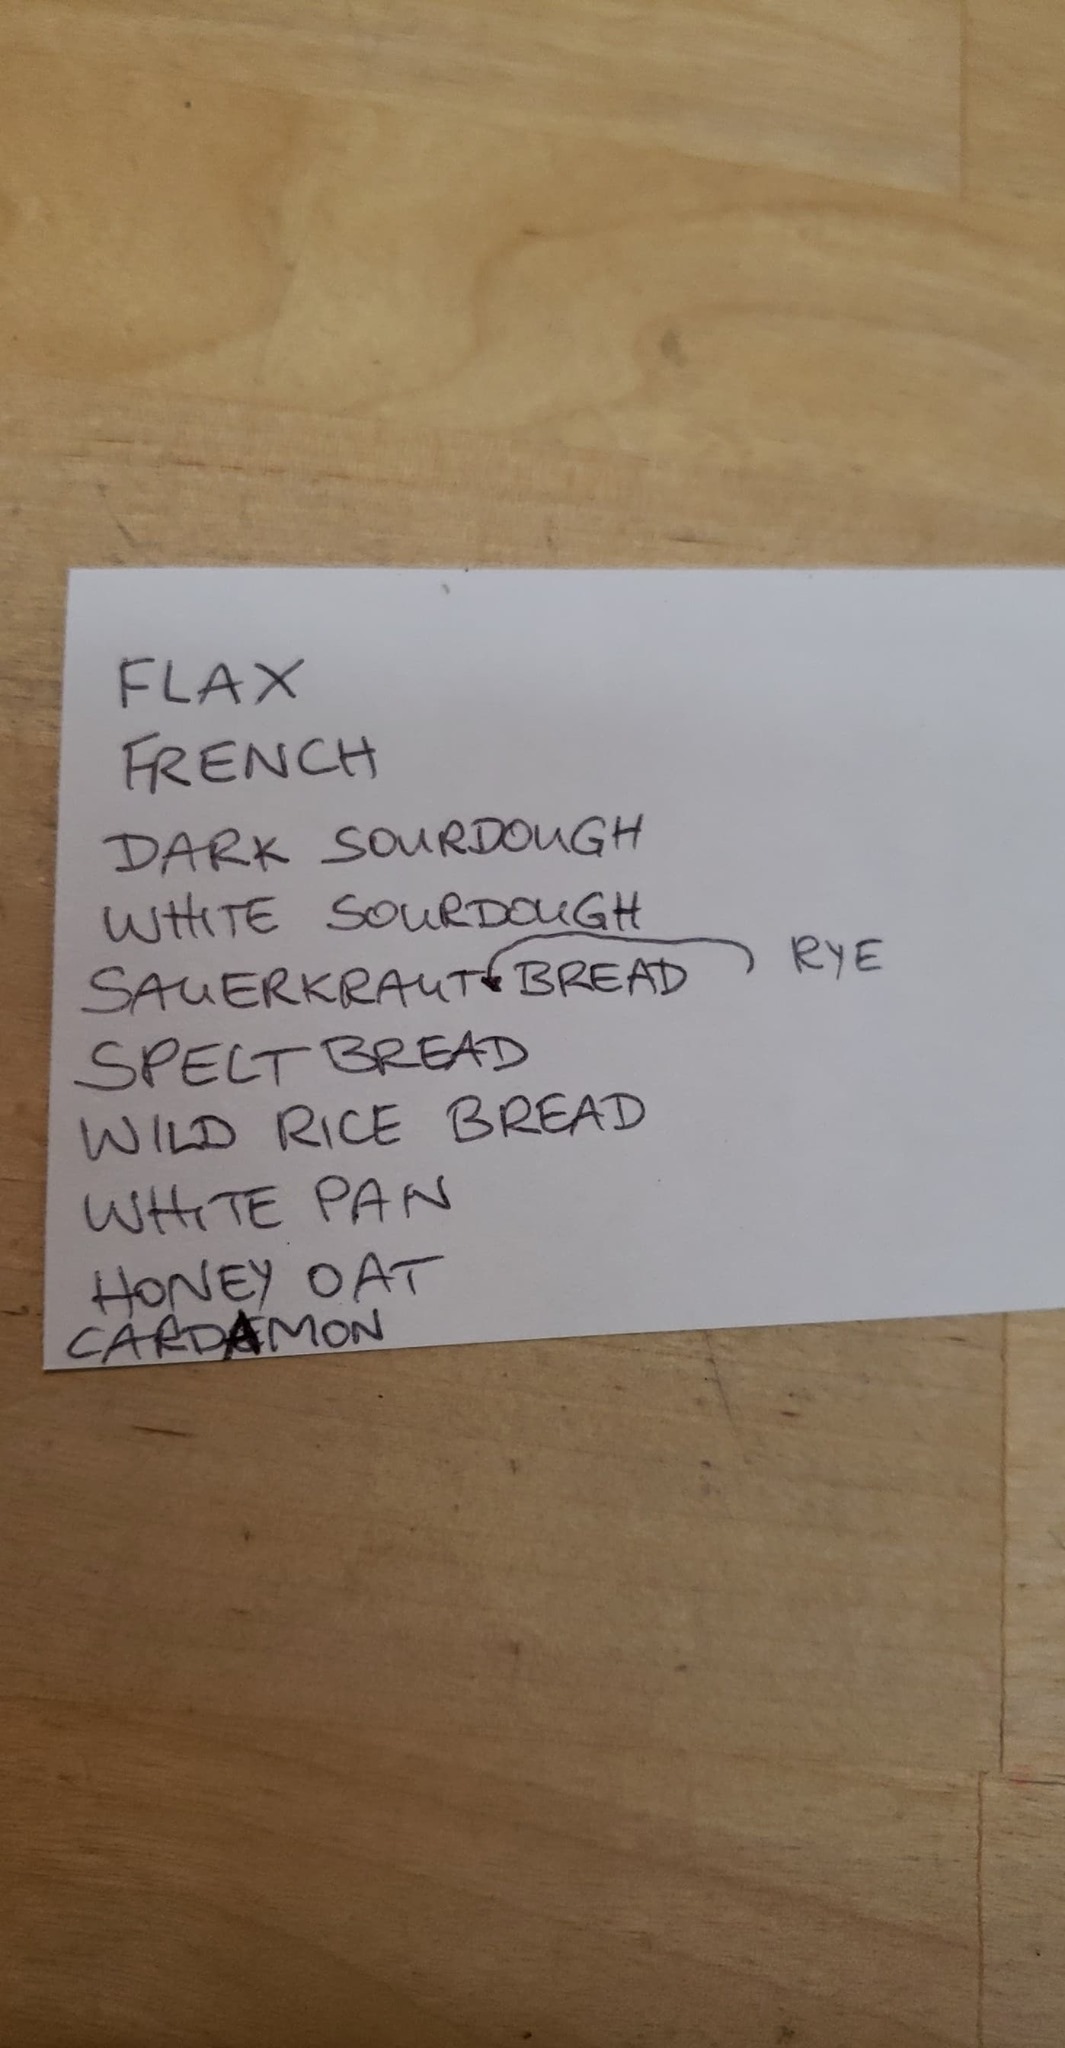 FLAX
FRENCH
DARK SOURDOUGH
WHITE SOURDOUGH
SAUERKRAUT BREAD RYE
SPELT BREAD
WILD RICE BREAD
WHITE PAN
HONEY OAT
CARDAMON